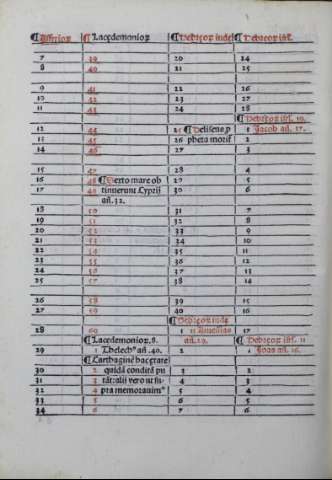 ¶ Assirioꝝ ¶ Lacedemonioꝝ ¶ Hebreoꝝ iude ¶ Hebreoꝝ isrl.
7 39 20 24
8 40 21 25
9 41 22 26
10 42 23 27
11 43 24 28
¶ Hebreoꝝ isrl. 10.
12 44 25 ¶ Heliseus ꝓ 1 Jacob añ. 17.
13 45 26 pheta morit̃ 2
14 46 27 3
15 47 28 4
16 48 ¶ Sexto mare ob 29 5
17 49 tinuerunt Cyprij 30 6
añ. 32.
18 50 31 7
19 51 32 8
20 52 33 9
21 53 34 10
22 54 35 11
23 55 36 12
24 56 37 13
25 57 38 14
26 58 39 15
27 59 40 16
¶ Hebreoꝝ iude
28 60 11 Amasias 17
¶ Lacedemonioꝝ. 8. añ. 29. ¶ Hebreoꝝ isrl. 11
29 1 Thelech⁹ añ. 40. 2 1 Joas añ. 16.
¶ Carthaginẽ hac ętate
30 2 quidã conditã pu 3 2
31 3 tãt: alij vero ut su- 4 3
32 4 pra memorauim⁹ 5 4
33 5 6 5
34 6 7 6